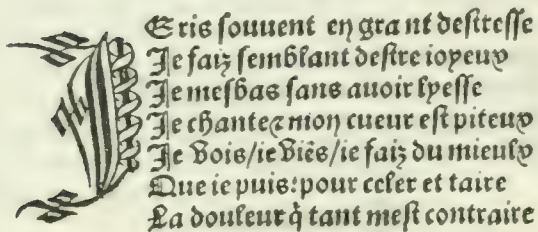 IE ris souuent en grant destresse
Je faiz semblant destre ioyeux
Je mesbas sans auoir lyesse
Je chante⁊ mon cueur est piteux
Je vois/ie viēs/ie faiz du mieulx
Que ie puis:pour celer et taire
La douleur q̄ tant mest contraire